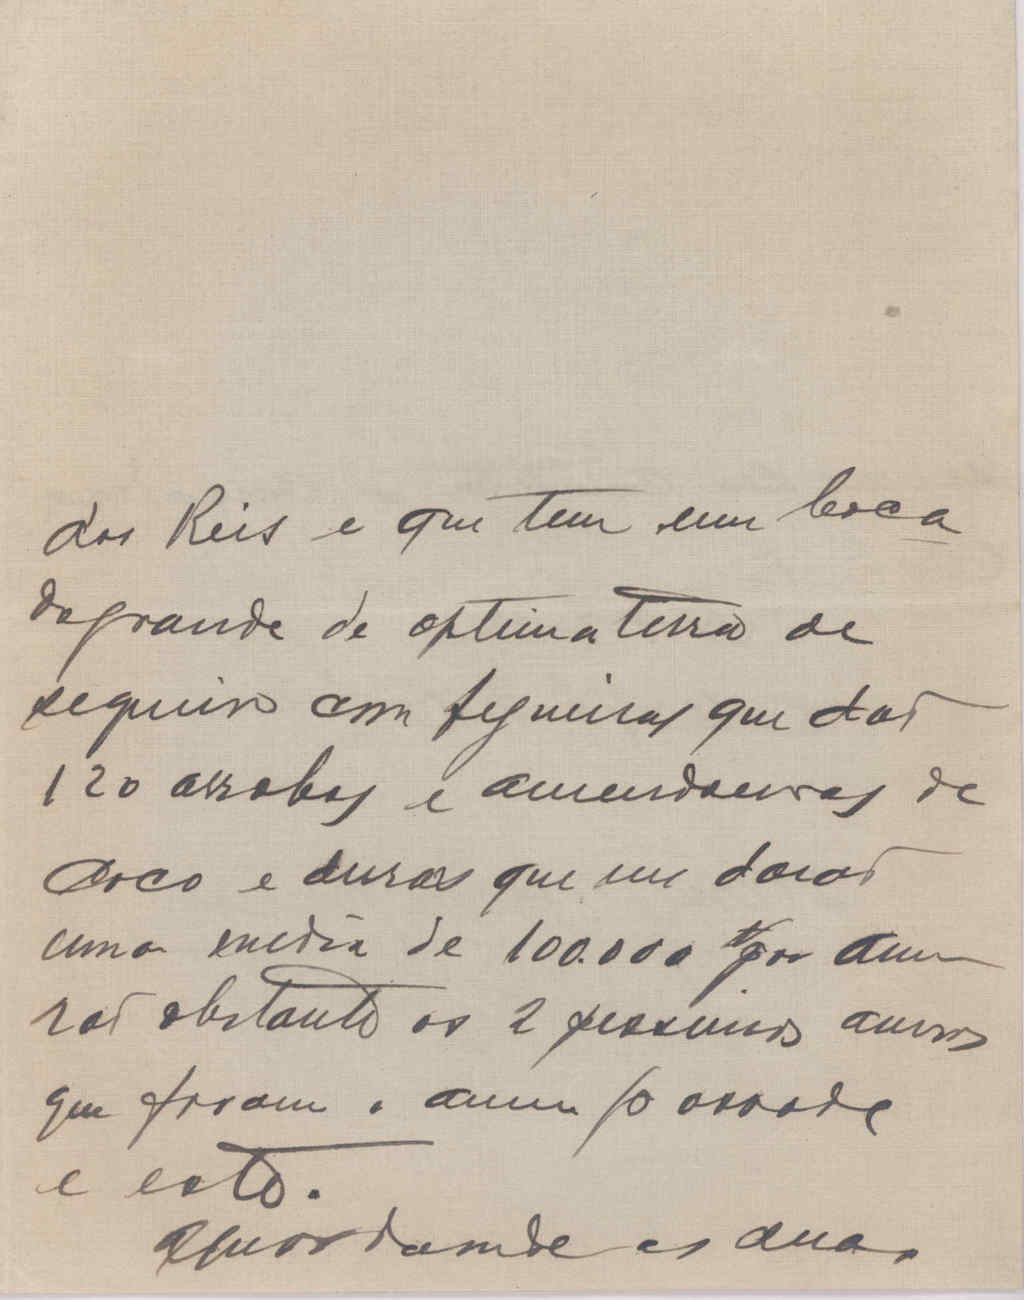 dos Reis e que tem um boca
do grande de optima terra de
sequeiro com figueiras que dão
120 arrobas e amendoeiras de
coco e duras que me darão
uma media de 100.000 por anno
não obstante os 2 pessimos annos
que foram o anno passado
e este.
Aguardando as suas